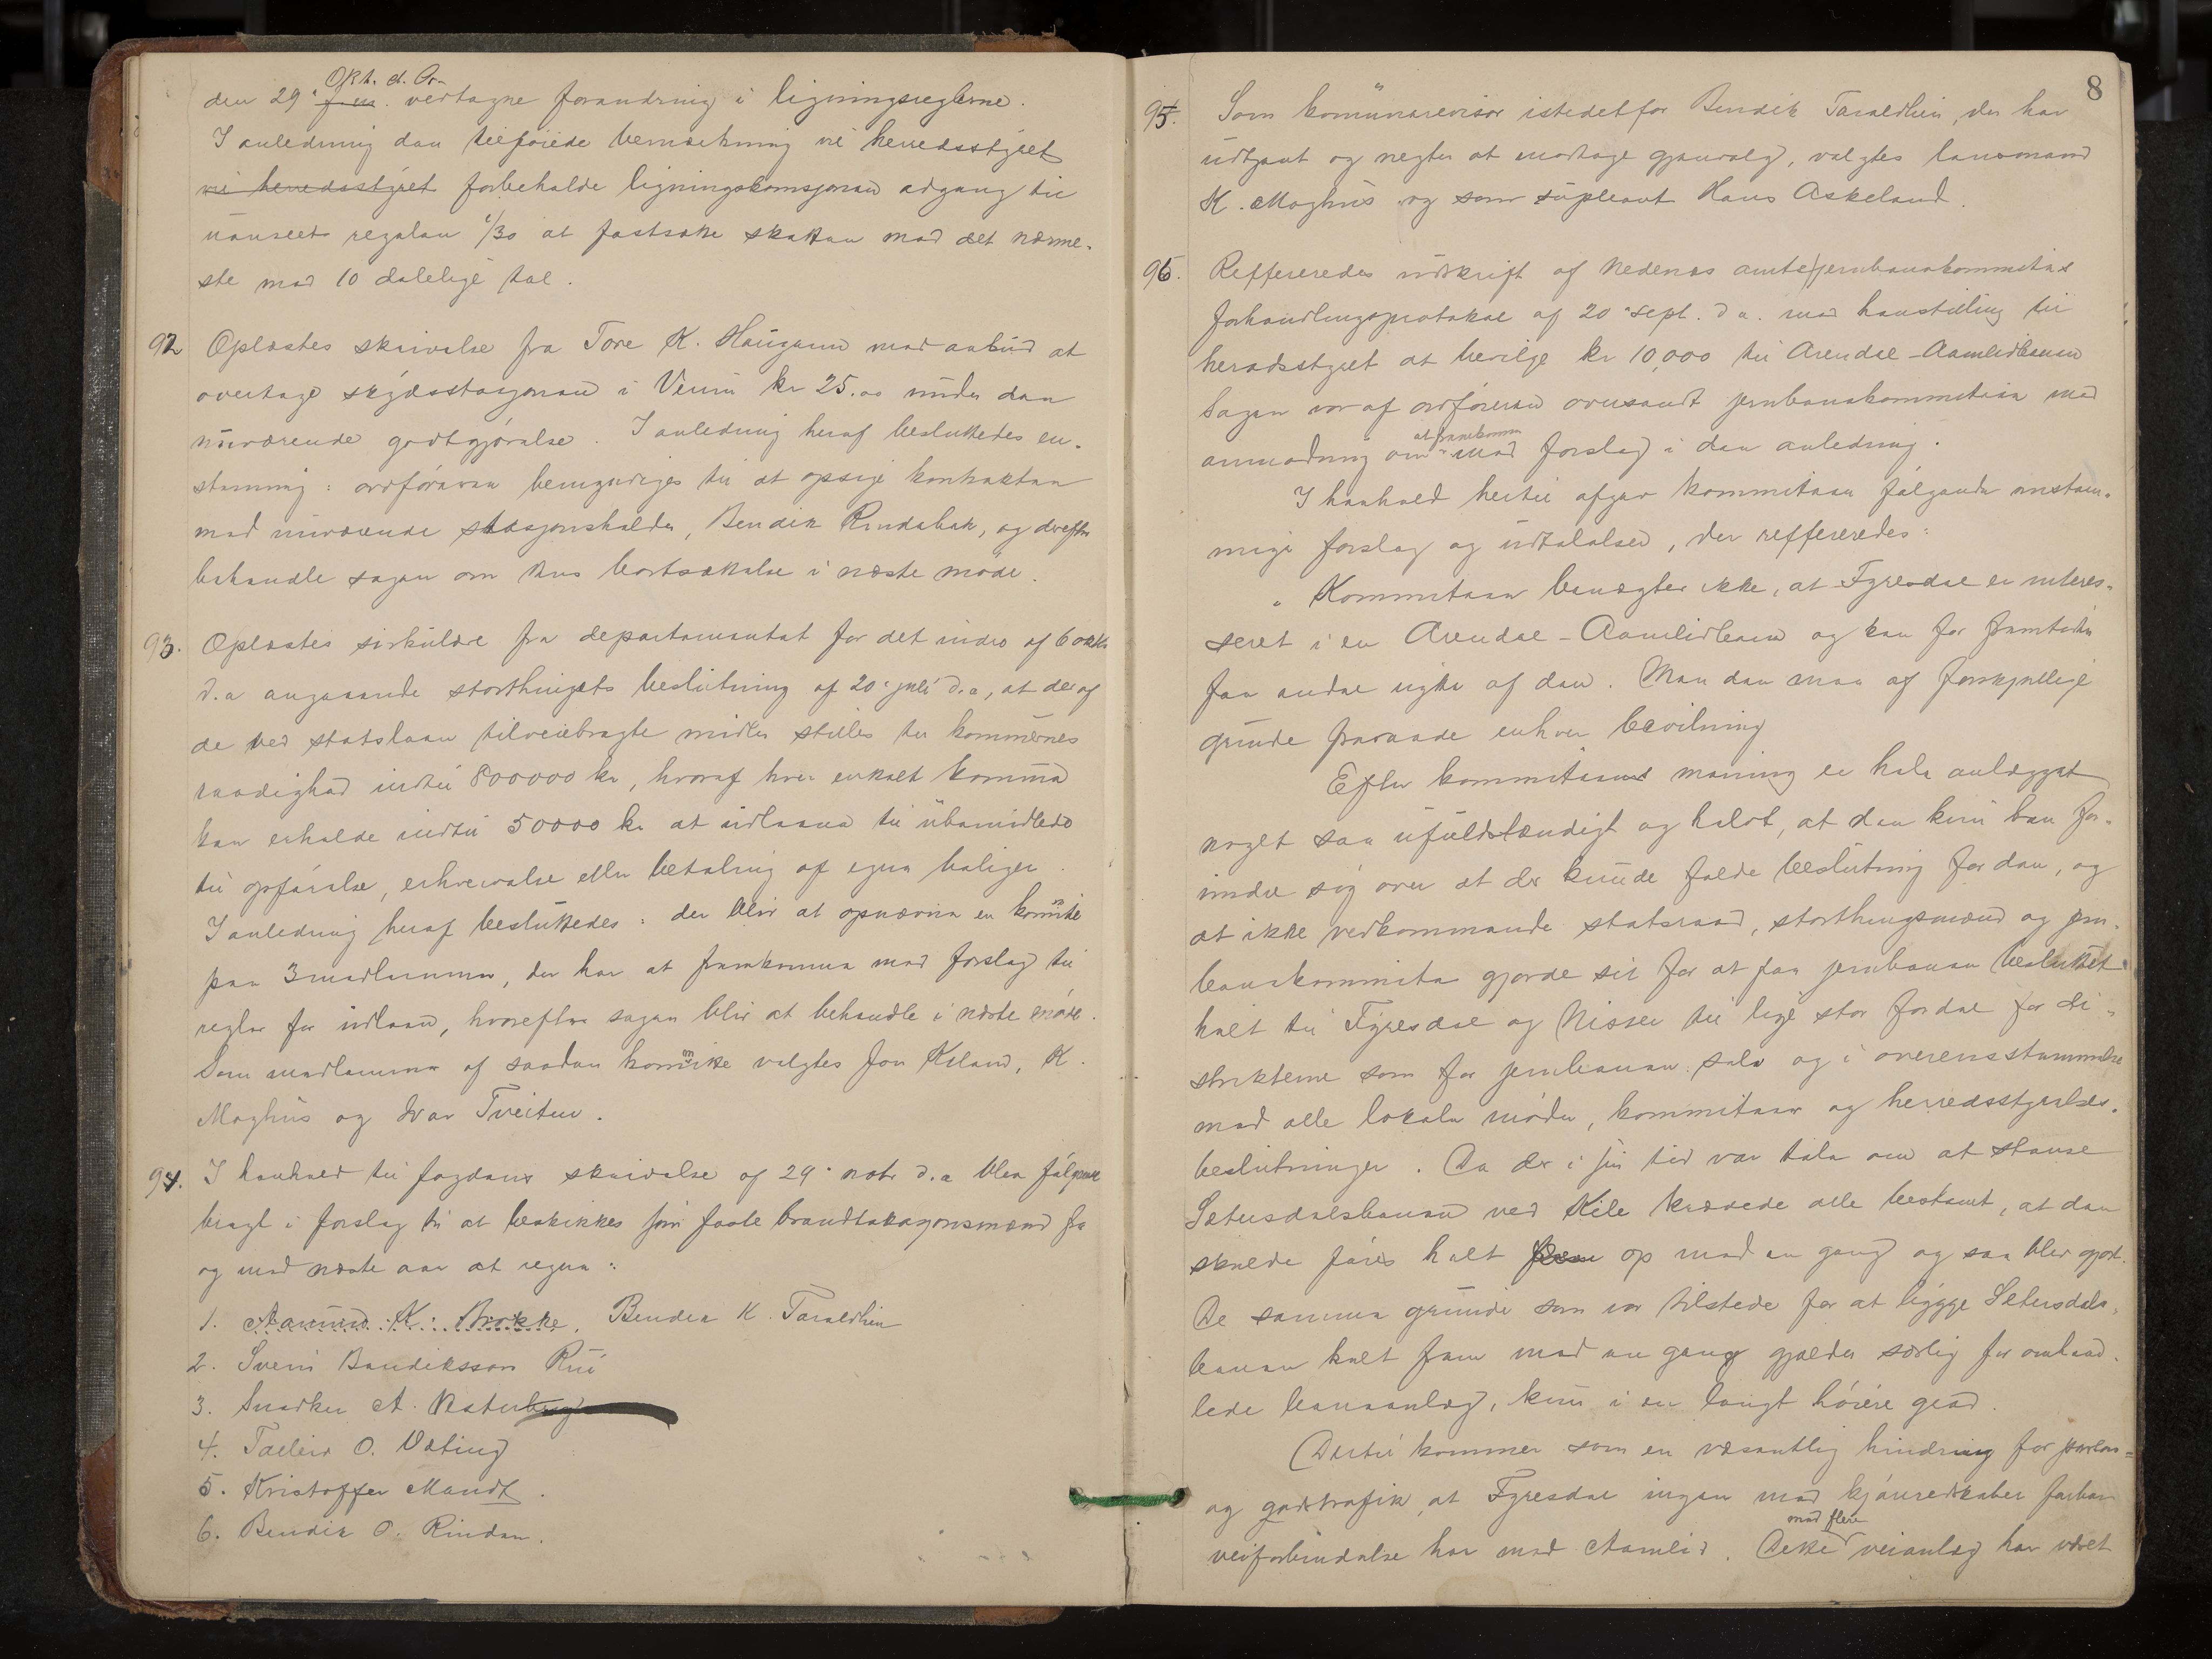 Okt. d. Ar.
den 29' f. m. vedtagne forandring i ligningsreglerne.
I anledning den tilføiede bemerkning vil herredsstyret
vil herredsstyret forbeholde ligningskomisjonen adgang til
uanseet regelen 1/30 at fastsætte skatten med det nærme-
ste med 10 delelige tal.
92 Oplæstes skrivelse fra Tore K. Haugann med anbud at
overtage skydsstasjonen i Veum kr 25.00 under den
nuværende godtgjørelse. I anledning heraf besluttedes en-
stemmig: ordføreren bemyndiges til at opsige kontrakten
med nuværende stasjonsholder, Bendik Rindebak, og derefter
behandle sagen om dens bortsættelse i næste møde.
93. Oplæstes sirkulære fra departementet for det indre af 6 okt.
d.a angaaende storthingets beslutning af 20' juli d.a, at der af
de ved statslaan tilveiebragte midler stilles til kommunernes
raadighed indtil 800000 kr, hvoraf hver enkelt komune
kan erholde indtil 50000 kr at udlaane til ubemidlede
til opførelse, erhvervelse eller betaling af egne boliger.
I anledning heraf besluttedes: der blir at opnævne en komite
paa 3 medlemmer, der har at fremkomme med forslag til
regler for udlaan, hvorefter sagen blir at behandle i næste møde.
Som medlemmer af saadan komite valgtes Jon Kiland, K.
Moghus og Ivar Tveiten.
94. I henhold til fogdens skrivelse af 29' novbr d.a blev følgende
bragt i forslag til at beskikkes som faste brandtakasjonsmænd fra
og med næste aar at regne:
1. Aamund K. Brokke. Bendik K. Taraldlien
2. Svein Bendiksson Rui
3. Snorker A. Naturbeg
4. Tarleiv O. Veting
5. Kristoffer Mandt.
6. Bendik O. Rindan.
8
95. Som komunerevisor istedetfor Bendik Taraldlien, der har
udtjent og negter at modtage gjenvalg, valgtes lensmand
K. Moghus og som supleant Hans Askeland.
96. Reffereredes udskrift af Nedenes amts jernbanekommites
forhandlingsprotokol af 20' sept. d a. med henstilling til
heredsstyret at bevilge kr 10,000 til Arendal-Aamlidbanen
Sagen var af ordføreren oversandt jernbanekommiteen med
at fremkomme
anmodning om med forslag i den anledning.
I henhold hertil afgav kommiteen følgende enstem-
mige forslag og udtalelse, der reffereredes:
"Kommiteen benægter ikke, at Fyresdal er interes-
seret i en Arendal-Aamlidbane og kan for fremtiden
faa endel nytte af den. Men den maa af forskjellige
grunde fraraade enhver bevilgning
Efter kommiteens mening er hele anlægget
noget saa ufuldstændigt og halvt, at den kun kan for-
undre sig over at der kunde falde beslutning for den, og
at ikke vedkommende statsraad, storthingsmænd og jern-
banekommite gjorde sit for at faa jernbanen besluttet
helt til Fyresdal og Nisser til lige stor fordel for di-
strikterne som for jernbanen selv og i overensstemmelse
med alle lokale møder, kommiteer og herredsstyrelses-
beslutninger. Da der i sin tid var tale om at stanse
Setersdalsbanen ved Kile krævede alle bestemt, at den
skulde føres helt frem op med en gang og saa blev gjort.
De samme grunde som var tilstede for at lægge Setersdals-
banen helt frem med en gang gjælder særlig for omhand-
lede baneanlæg, kun i en langt høiere grad.
Dertil kommer som en væsentlig hindring for person-
og godstrafik, at Fyresdal ingen med kjøreredskaber farbar
med flere
veiforbindelse har med Aamlid. Dette veianlæg har været